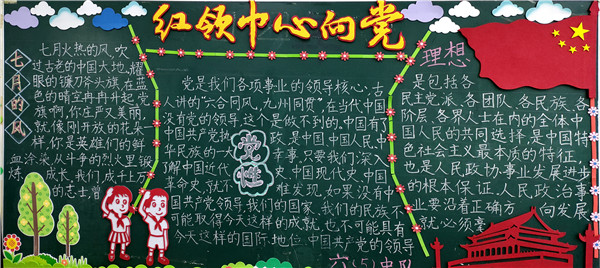 红领巾心向党
七月的风
七月火热的风,吹
过古老的中国大地,耀
眼的镰刀斧头旗,在蓝
色的晴空冉冉升起。党
旗啊,你庄严又美丽,
就像刚开放的花朵一
样,你是英雄们的鲜
血涂染,从斗争的烈火里锻
炼、成长,我们成千上万
的志士,曾
党性
党是我们各项事业的领导核心,古
人讲的“六合同风,九州同贯”,在当代中国
没有党的领导,这个是做不到的。中国有
中国共产党执政,是中国、中国人民、中
华民族的一大幸事。只要我们深入
了解中国近代史、中国现代史、中国
革命史,就不难发现,如果没有中
国共产党领导,我们的国家、我们的民族不
可能取得今天这样的成就,也不可能具有
今天这样的国际地位。中国共产党的领导
理想
是包括各
民主党派、各团队、各民族、各
阶层、各界人士在内的全体中
国人民的共同选择,是中国特
色社会主义最本质的特征,
也是人民政协事业发展进步
的根本保证。人民政治事
业要沿着正确方向发展,
就必须毫
六(5)中队